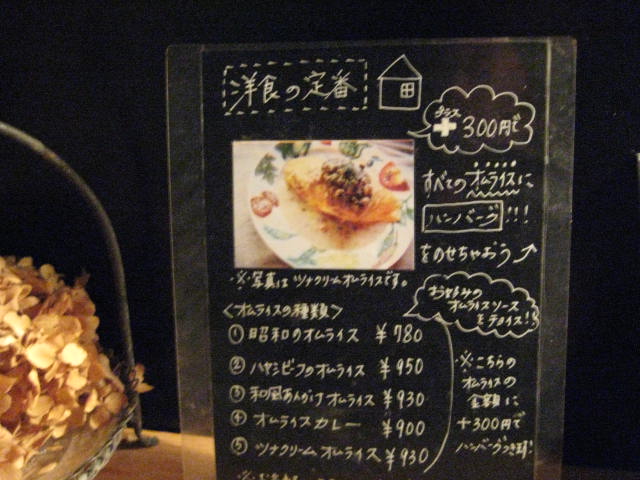 洋食の定番
プラス
+300円で
すべてのオムライスに
ハンバーグ!!!
をのせちゃおう
※写真はツナクリームオムライスです。
お好みの
オムライスソース
をチョイス!!
<オムライスの種類>
① 昭和のオムライス ¥780
② ハヤシビーフのオムライス ¥950
③ 和風あんかけオムライス ¥930
④ オムライスカレー ¥900
⑤ ツナクリームオムライス ¥930
※こちらの
オムライスの
金額に
+300円で
ハンバーグつき